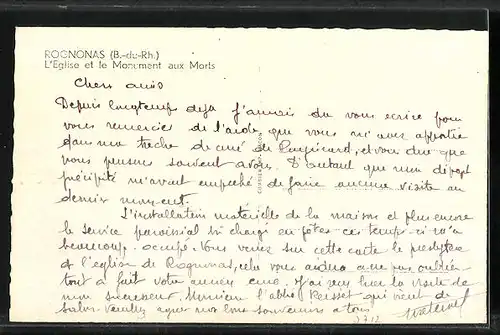 ROGNONAS (B.-du-Rh.)
L'Eglise et le Monument aux Morts
Chers amis
Depuis longtemps déjà j'aurais du vous écrire pour
vous remercier de l'aide que vous m'avez apportée
dans ma tâche de curé de et vous dire que
nous pensons souvent à vous. D'autant que mon départ
précipité m'avait empêché de faire aucune visite au
dernier moment.
L'installation matérielle de la maison et plus encore
le service paroissial si chargé en ces temps-ci m'a
beaucoup occupé. Vous verrez sur cette carte le presbytère
et l'église de Rognonas, cela vous aidera à ne pas oublier
tout à fait votre ancien curé. J'ai la visite de
mon successeur Monsieur l'abbé qui vient de
Salon. Veuillez agréer mes bons souvenirs à tous